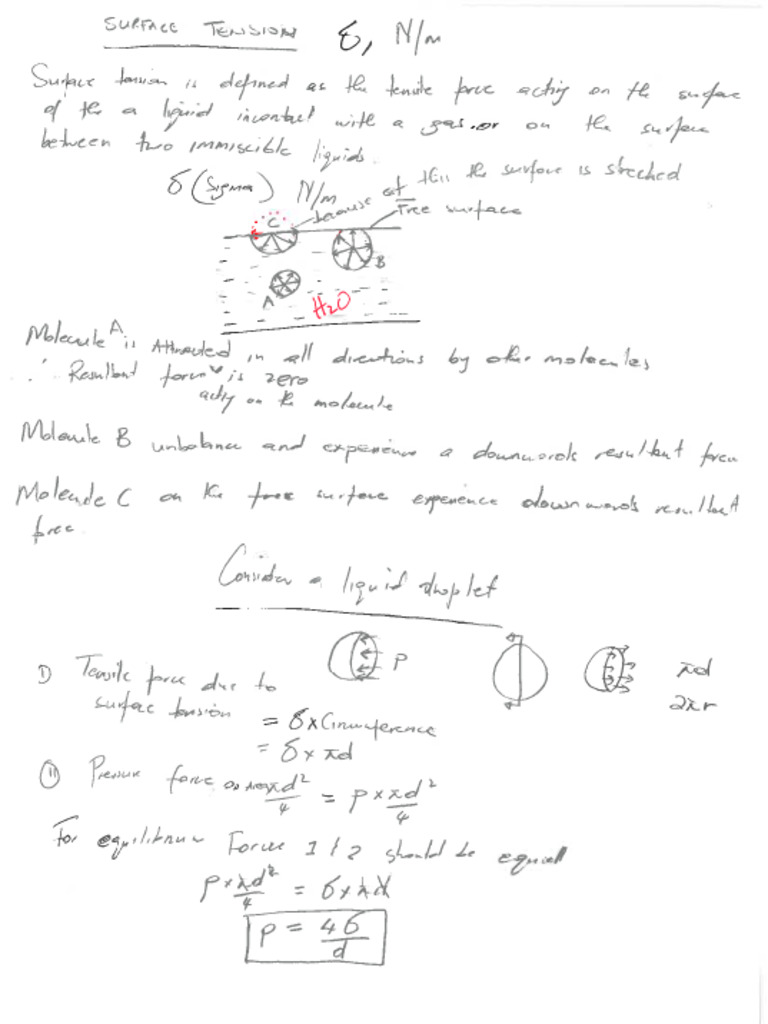 SURFACE TENSION σ, N/m
Surface tension is defined as the tensile force acting on the surface
of the a liquid incontact with a gas or on the surface
between two immiscible liquids.
σ (Sigma) N/m because at this the surface is streched
Free surface
C
B
A
H2O
Molecule A is Attracted in all directions by other molecules
∴ Resultant force is zero
acting on the molecule
Molecule B unbalance and experience a downwards resultant force
Molecule C on the free surface experience downwards resultant
force.
Consider a liquid droplet
P
πd
2πr
I) Tensile force due to
surface tension = σ x Circumference
= σ x πd
II Pressure force on area πd²/4 = P x πd²/4
For equilibrium Forces 1 & 2 should be equal
P x πd²/4 = σ x πd
P = 4σ/d